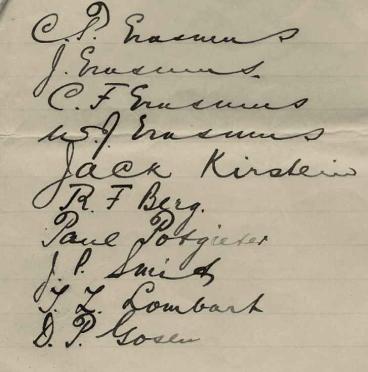 C. P. Erasmus
J. Erasmus.
C. F Erasmus
W. J Erasmus
Jack Kirstein
R. F Berg.
Paul Potgieter
J. P. Smit
T. Z. Lombart
D. P. Gosen